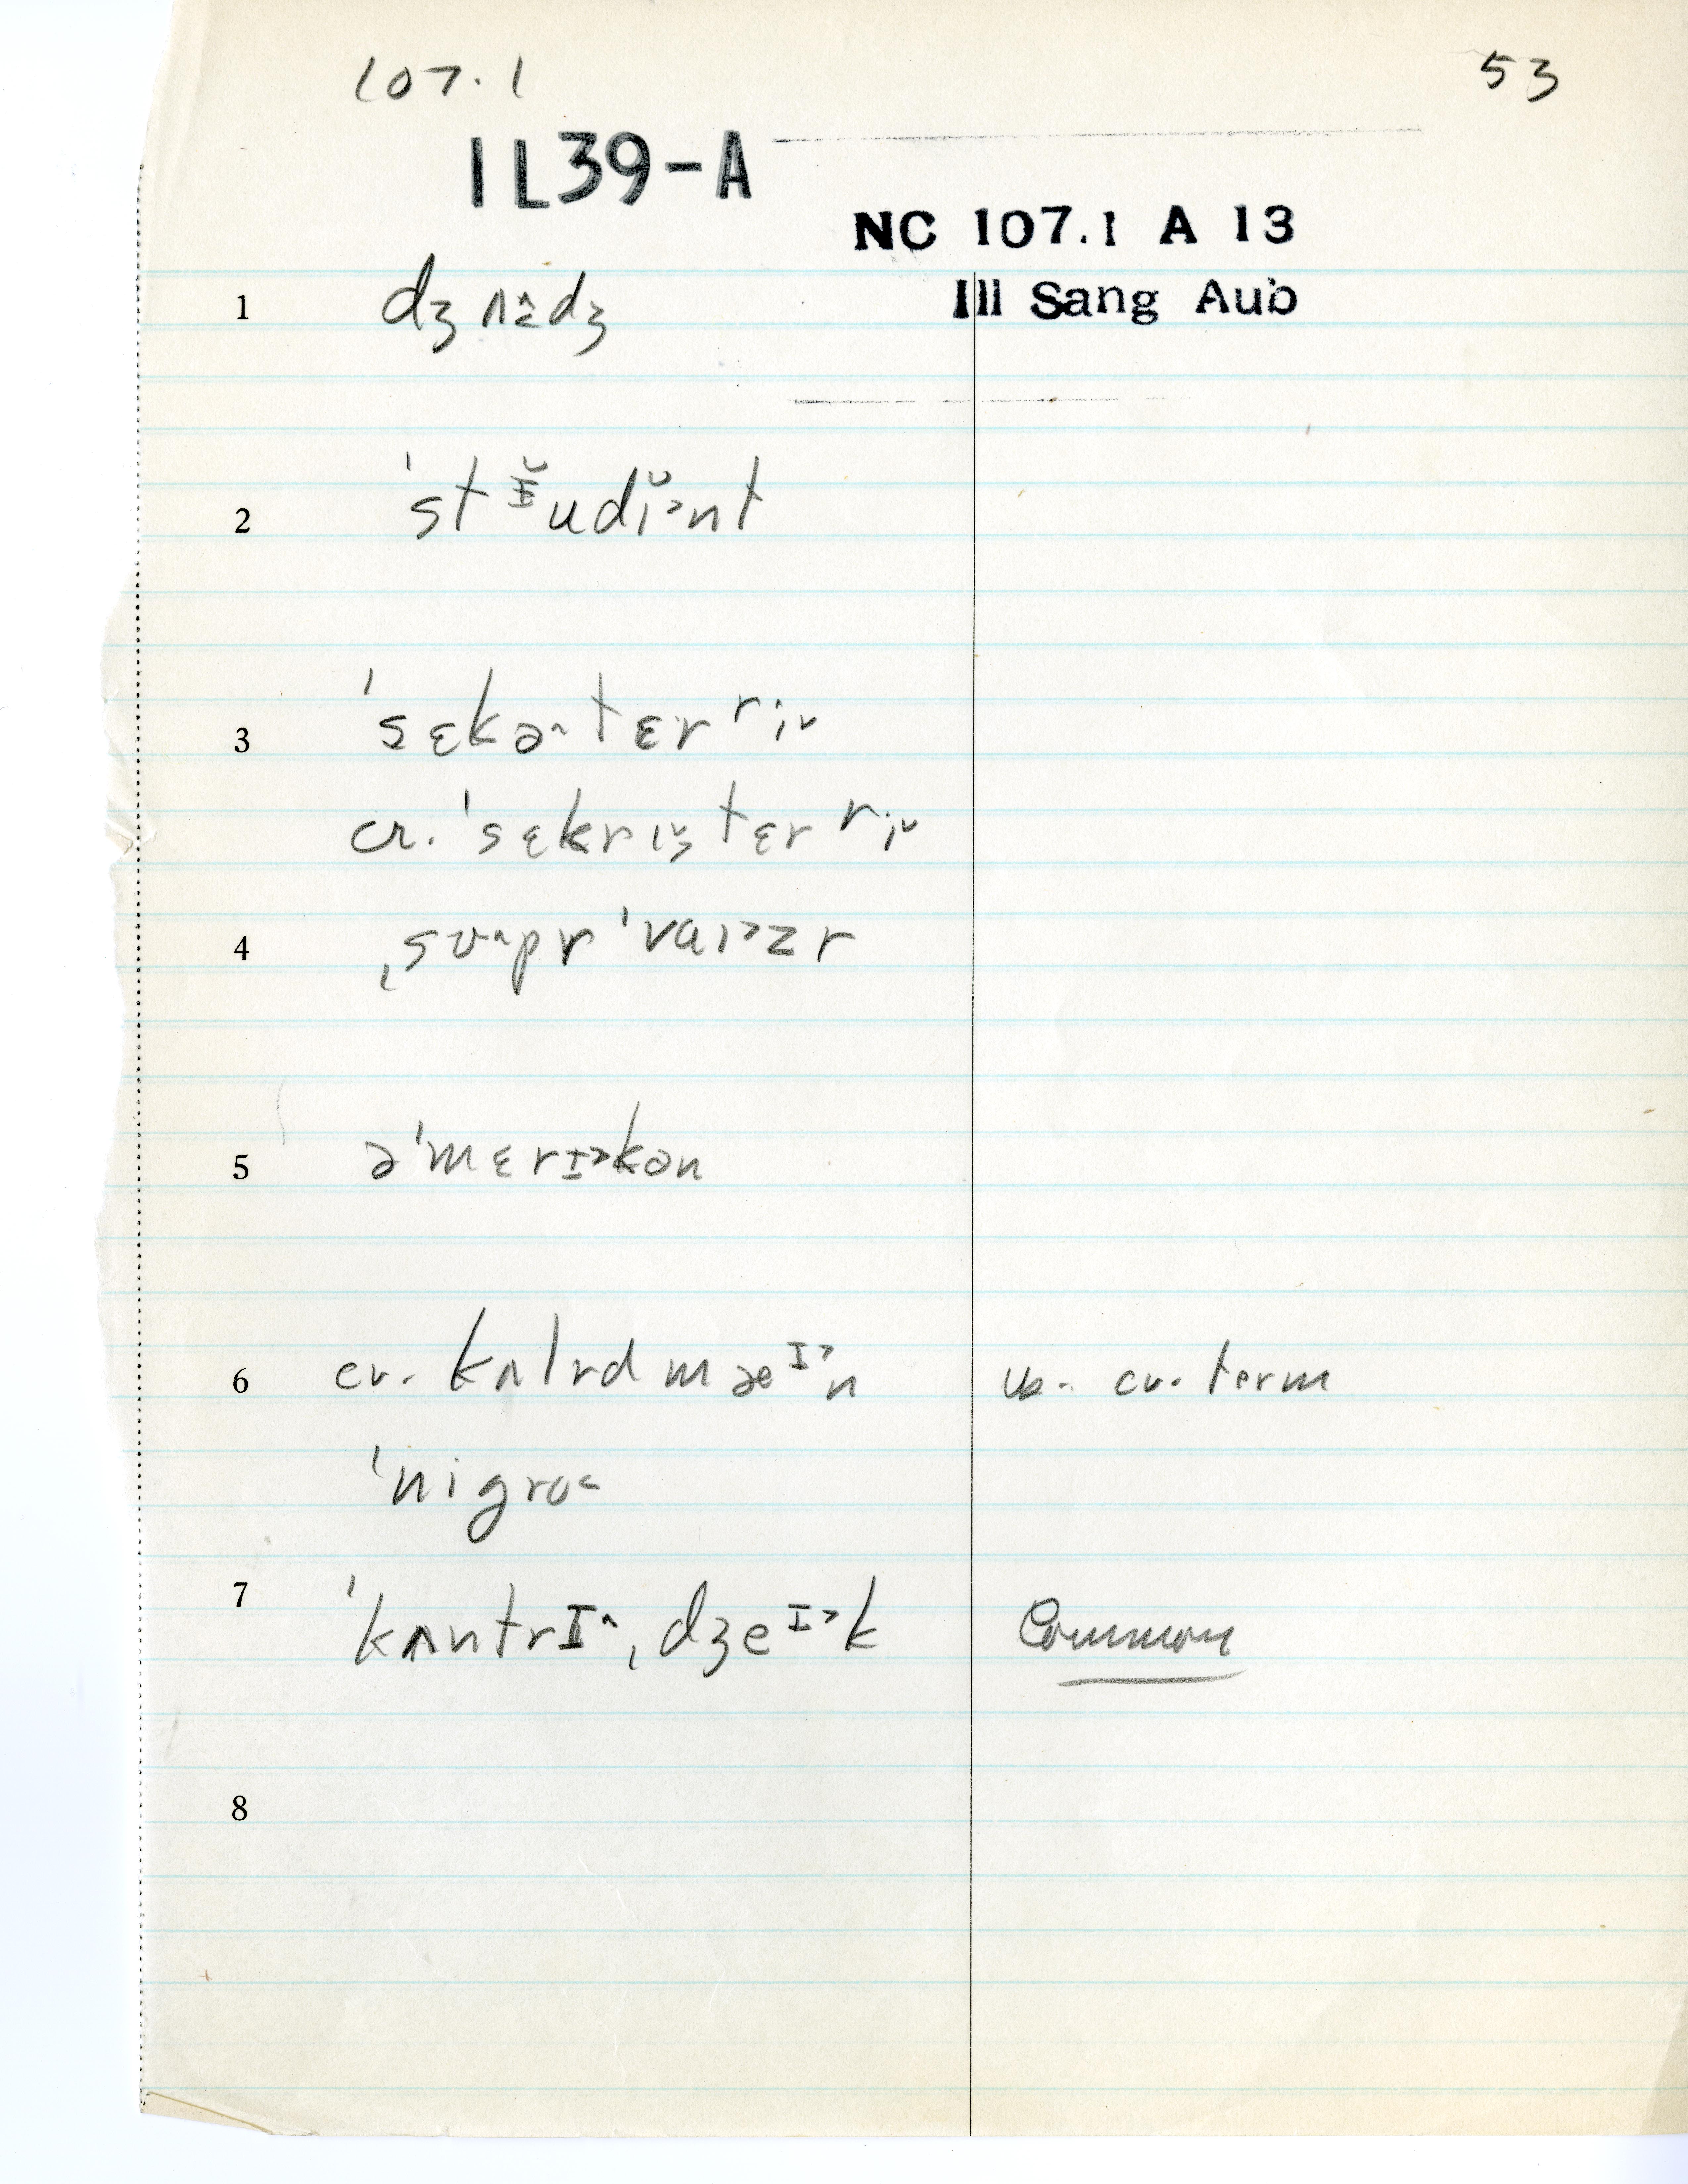 107.1
53
IL39-A
NC 107.1 A 13
Ill Sang Aub
1 dʒʌ̂ʒdʒ
2 ˈstɪ̆udĭ˃nt
3 ˈsɛkə^tɛr rɪ˅
cr. ˈsɛkrɪ˅ʒtɛr rɪ˅
4 ˌsʊ^prˈvaɪ˃zr
5 əˈmɛrɪ˃kən
6 cr. kʌlrd mæᴵ˃n us. cr. term
ˈnigro˂
7 ˈkʌntrɪ^ˌdʒeᴵ˃k Common
8